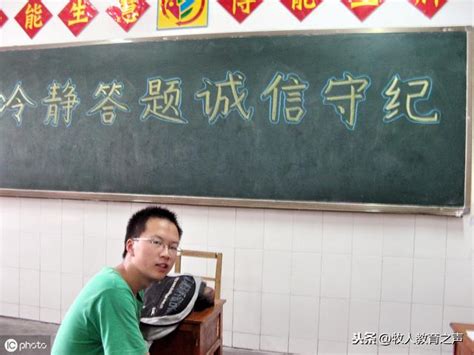 能生慧
得能生
冷静答题诚信守纪
iPhoto
头条@牧人教育之声